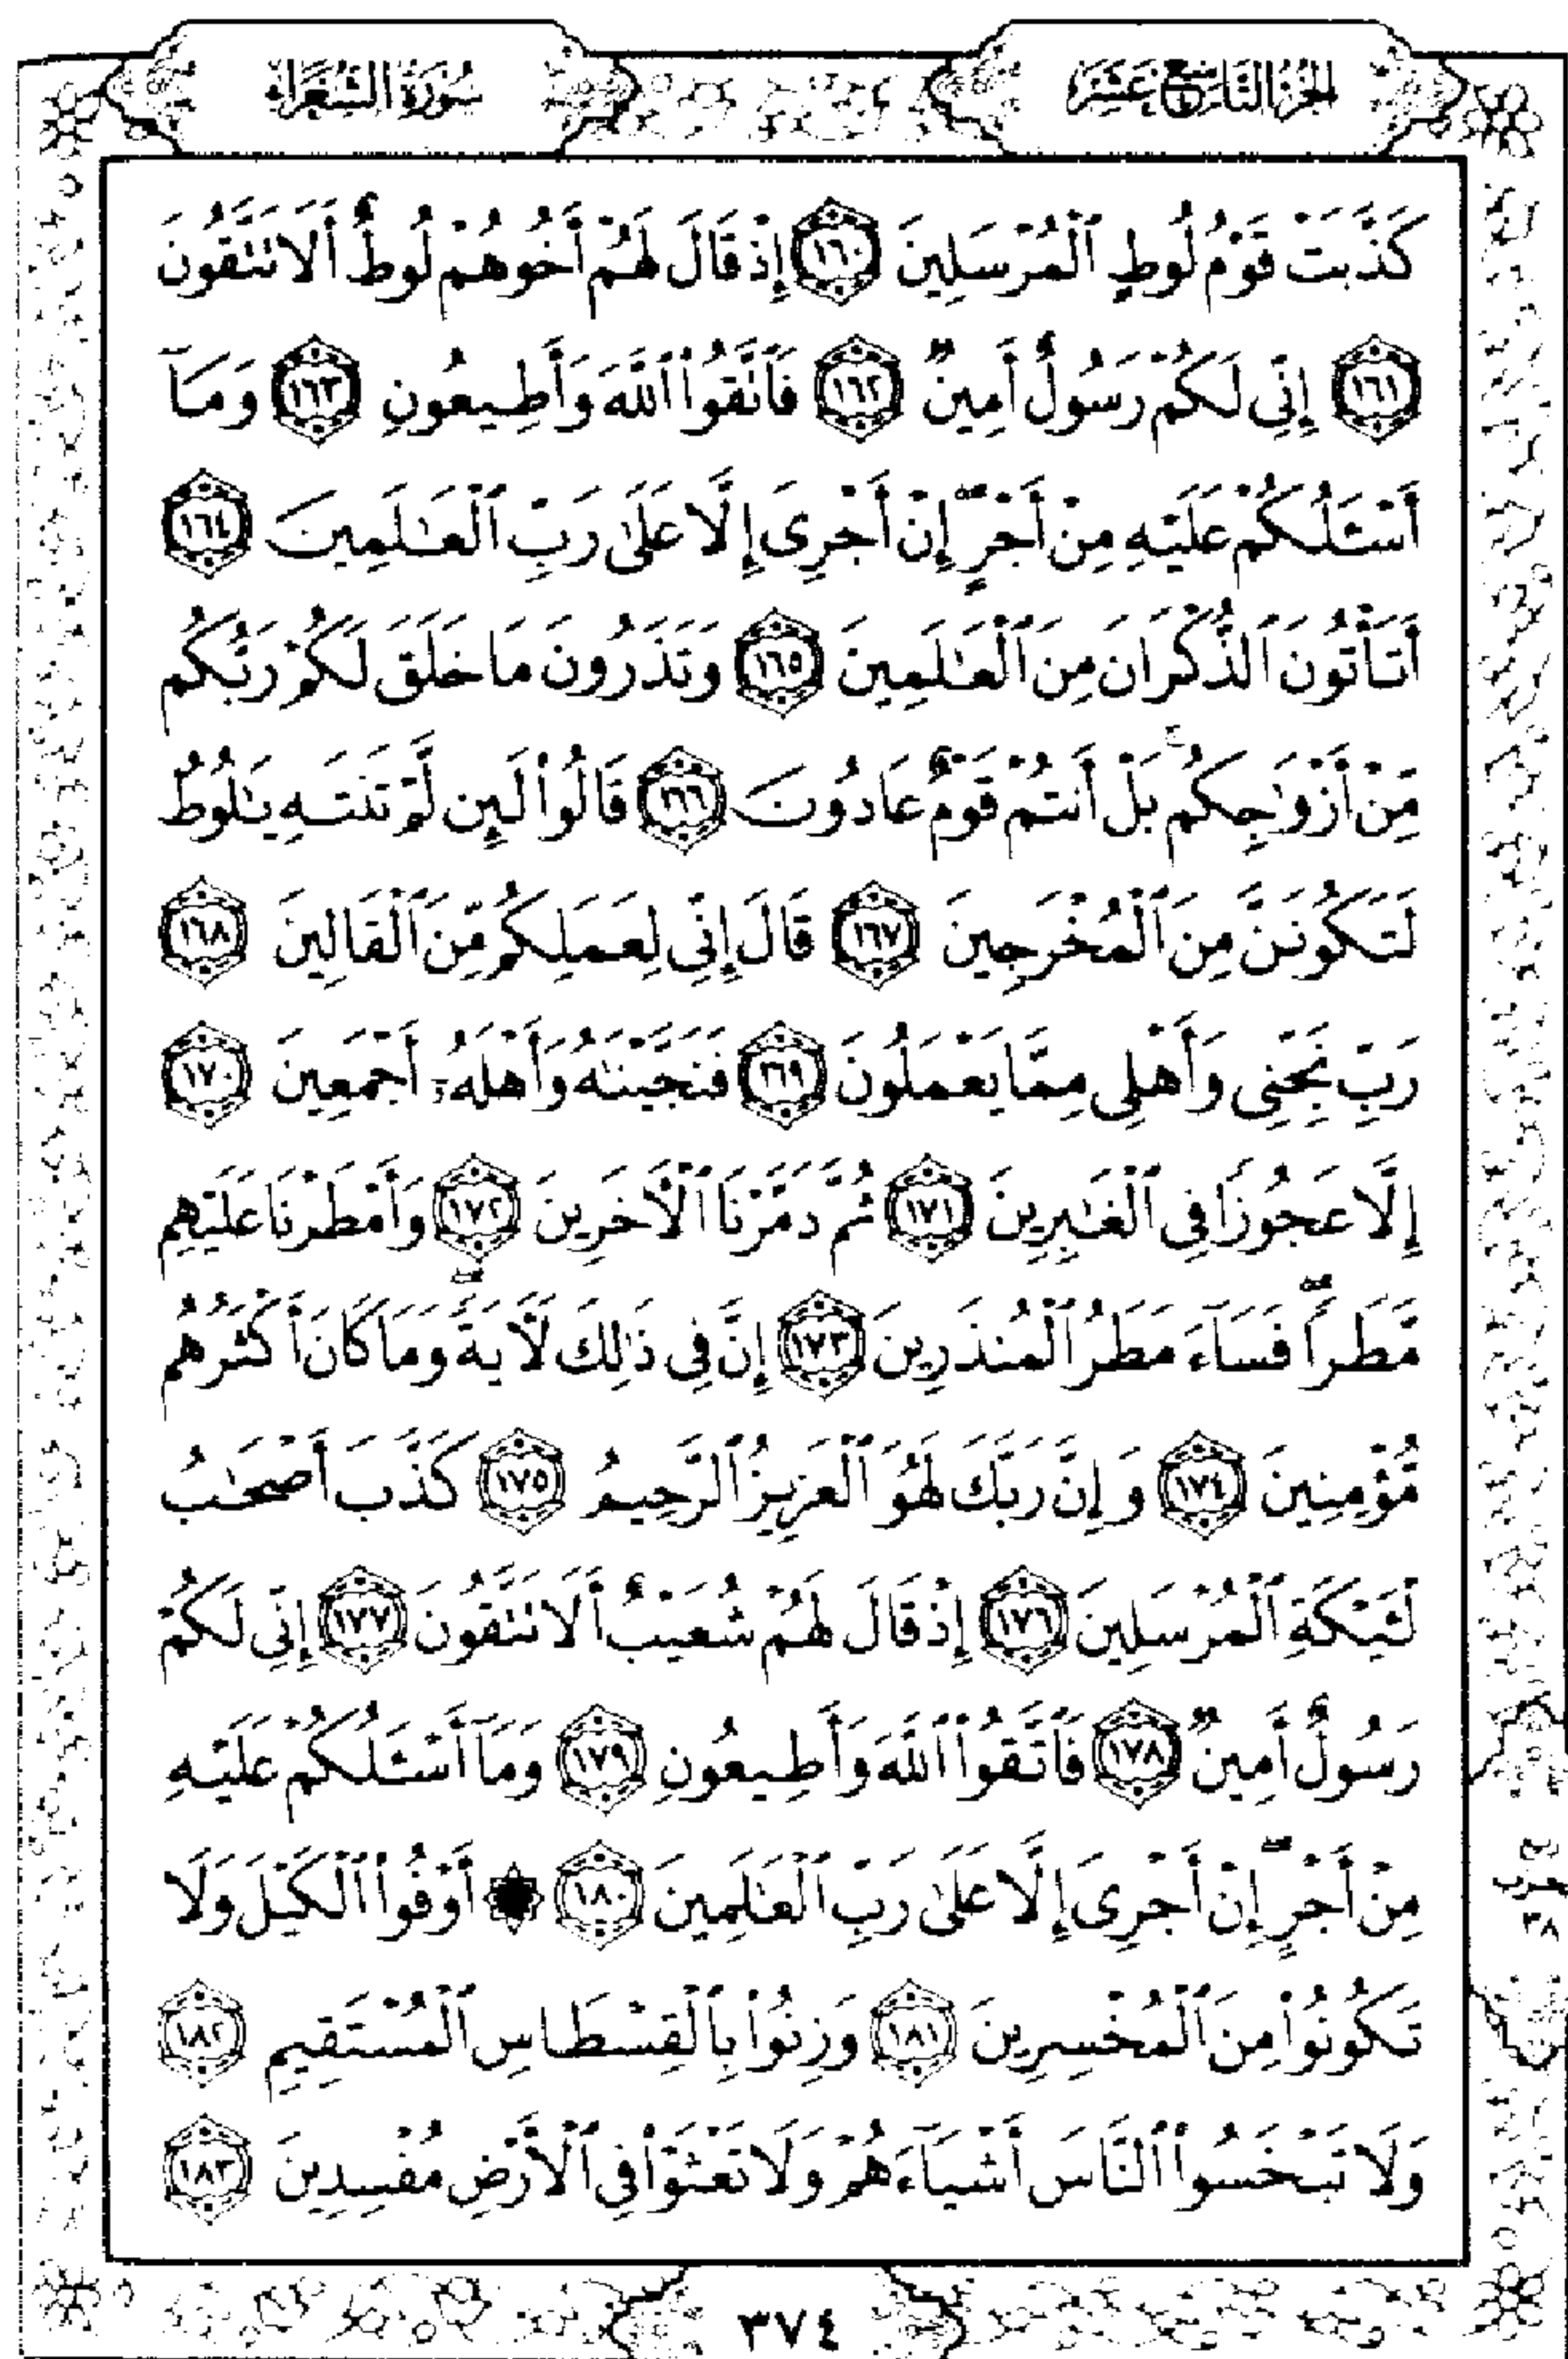 الجزء التاسع عشر
سورة الشعراء
كَذَّبَتْ قَوْمُ لُوطٍ ٱلْمُرْسَلِينَ ١٦٠ إِذْ قَالَ لَهُمْ أَخُوهُمْ لُوطٌ أَلَا تَتَّقُونَ
١٦١ إِنِّي لَكُمْ رَسُولٌ أَمِينٌ ١٦٢ فَٱتَّقُوا۟ ٱللَّهَ وَأَطِيعُونِ ١٦٣ وَمَآ
أَسْـَٔلُكُمْ عَلَيْهِ مِنْ أَجْرٍ ۖ إِنْ أَجْرِىَ إِلَّا عَلَىٰ رَبِّ ٱلْعَـٰلَمِينَ ١٦٤
أَتَأْتُونَ ٱلذُّكْرَانَ مِنَ ٱلْعَـٰلَمِينَ ١٦٥ وَتَذَرُونَ مَا خَلَقَ لَكُمْ رَبُّكُم
مِّنْ أَزْوَٰجِكُم ۚ بَلْ أَنتُمْ قَوْمٌ عَادُونَ ١٦٦ قَالُوا۟ لَئِن لَّمْ تَنتَهِ يَـٰلُوطُ
لَتَكُونَنَّ مِنَ ٱلْمُخْرَجِينَ ١٦٧ قَالَ إِنِّى لِعَمَلِكُم مِّنَ ٱلْقَالِينَ ١٦٨
رَبِّ نَجِّنِى وَأَهْلِى مِمَّا يَعْمَلُونَ ١٦٩ فَنَجَّيْنَـٰهُ وَأَهْلَهُۥٓ أَجْمَعِينَ ١٧٠
إِلَّا عَجُوزًا فِى ٱلْغَـٰبِرِينَ ١٧١ ثُمَّ دَمَّرْنَا ٱلْـَٔاخَرِينَ ١٧٢ وَأَمْطَرْنَا عَلَيْهِم
مَّطَرًا ۖ فَسَآءَ مَطَرُ ٱلْمُنذَرِينَ ١٧٣ إِنَّ فِى ذَٰلِكَ لَـَٔايَةً ۖ وَمَا كَانَ أَكْثَرُهُم
مُّؤْمِنِينَ ١٧٤ وَإِنَّ رَبَّكَ لَهُوَ ٱلْعَزِيزُ ٱلرَّحِيمُ ١٧٥ كَذَّبَ أَصْحَـٰبُ
لْـَٔيْكَةِ ٱلْمُرْسَلِينَ ١٧٦ إِذْ قَالَ لَهُمْ شُعَيْبٌ أَلَا تَتَّقُونَ ١٧٧ إِنِّى لَكُمْ
رَسُولٌ أَمِينٌ ١٧٨ فَٱتَّقُوا۟ ٱللَّهَ وَأَطِيعُونِ ١٧٩ وَمَآ أَسْـَٔلُكُمْ عَلَيْهِ
مِنْ أَجْرٍ ۖ إِنْ أَجْرِىَ إِلَّا عَلَىٰ رَبِّ ٱلْعَـٰلَمِينَ ١٨٠ ۞ أَوْفُوا۟ ٱلْكَيْلَ وَلَا
تَكُونُوا۟ مِنَ ٱلْمُخْسِرِينَ ١٨١ وَزِنُوا۟ بِٱلْقِسْطَاسِ ٱلْمُسْتَقِيمِ ١٨٢
وَلَا تَبْخَسُوا۟ ٱلنَّاسَ أَشْيَآءَهُمْ وَلَا تَعْثَوْا۟ فِى ٱلْأَرْضِ مُفْسِدِينَ ١٨٣
حزب
٣٨
٣٧٤